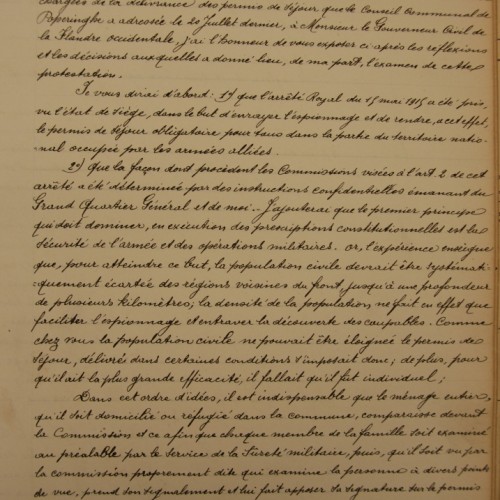 chargées de la délivrance des permis de séjour, que le Conseil Communal de
Poperinghe a adressée le 20 Juillet dernier, à Monsieur le Gouverneur Civil de
la Flandre Occidentale, j'ai l'honneur de vous exposer ci après les réflexions
et les décisions auxquelles a donné lieu, de ma part, l'examen de cette
protestation.
Je vous dirai d'abord: 1°) que l'arrêté Royal du 15 mai 1915 a été pris,
vu l'état de siège, dans le but d'enrayer l'espionnage et de rendre, à cet effet,
le permis de séjour obligatoire pour tous dans la partie du territoire natio-
nal occupée par les armées alliées.
2°) que la façon dont procèdent les Commissions visées à l'art 2 de cet
arrêté a été déterminée par des instructions confidentielles émanant du
Grand Quartier Général et de moi.. J'ajouterai que le premier principe
qui doit dominer, en exécution des prescriptions constitutionnelles est la
sécurité de l'armée et des opérations militaires. or, l'expérience enseigne
que, pour atteindre ce but, la population civile devrait être systémati-
quement écartée des régions voisines du front, jusqu'à une profondeur
de plusieurs kilomètres; la densité de la population ne fait en effet que
faciliter l'espionnage et entraver la découverte des coupables. Comme
chez vous la population civile ne pouvait être éloignée le permis de
séjour, délivré dans certaines conditions s'imposait donc; de plus, pour
qu'il ait la plus grande efficacité, il fallait qu'il fut individuel;
Dans cet ordre d'idées, il est indispensable que le ménage entier,
qu'il soit domicilié ou réfugié dans la commune, comparaisse devant
la Commission et ce afin que chaque membre de la famille soit examiné
au préalable par le service de la Sûreté militaire, puis, qu'il soit vu par
la commission proprement dite qui examine la personne à divers points
de vue, prend son signalement et lui fait apposer sa signature sur le permis